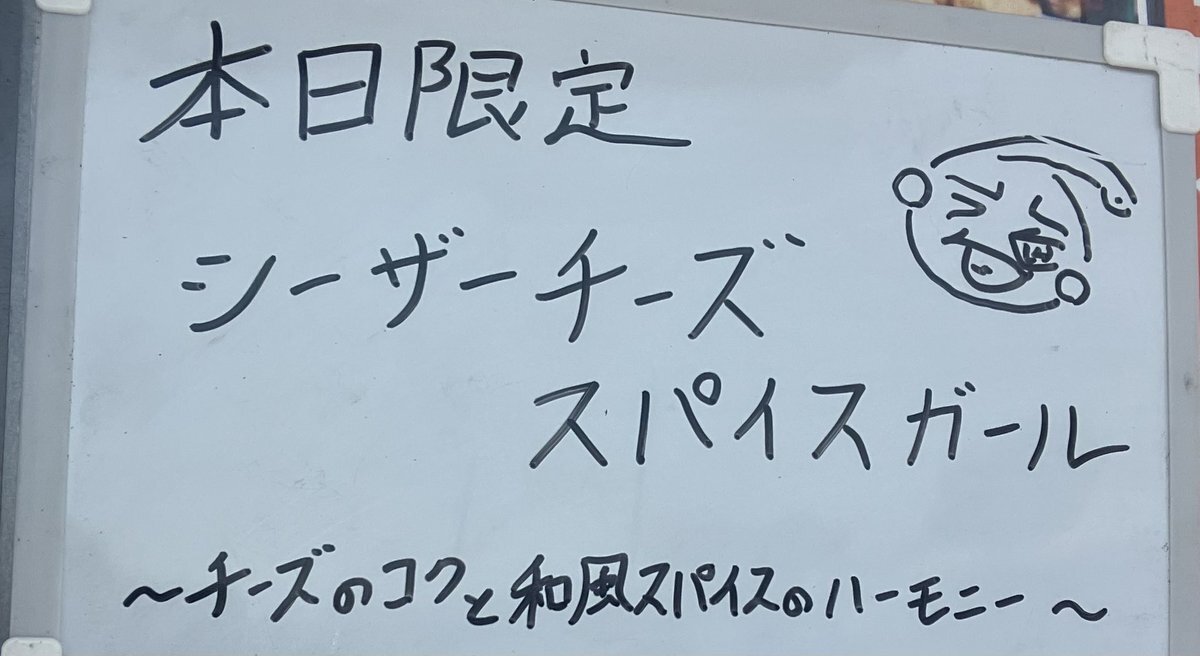 本日限定
シーザーチーズ
スパイスガール
～チーズのコクと和風スパイスのハーモニー～